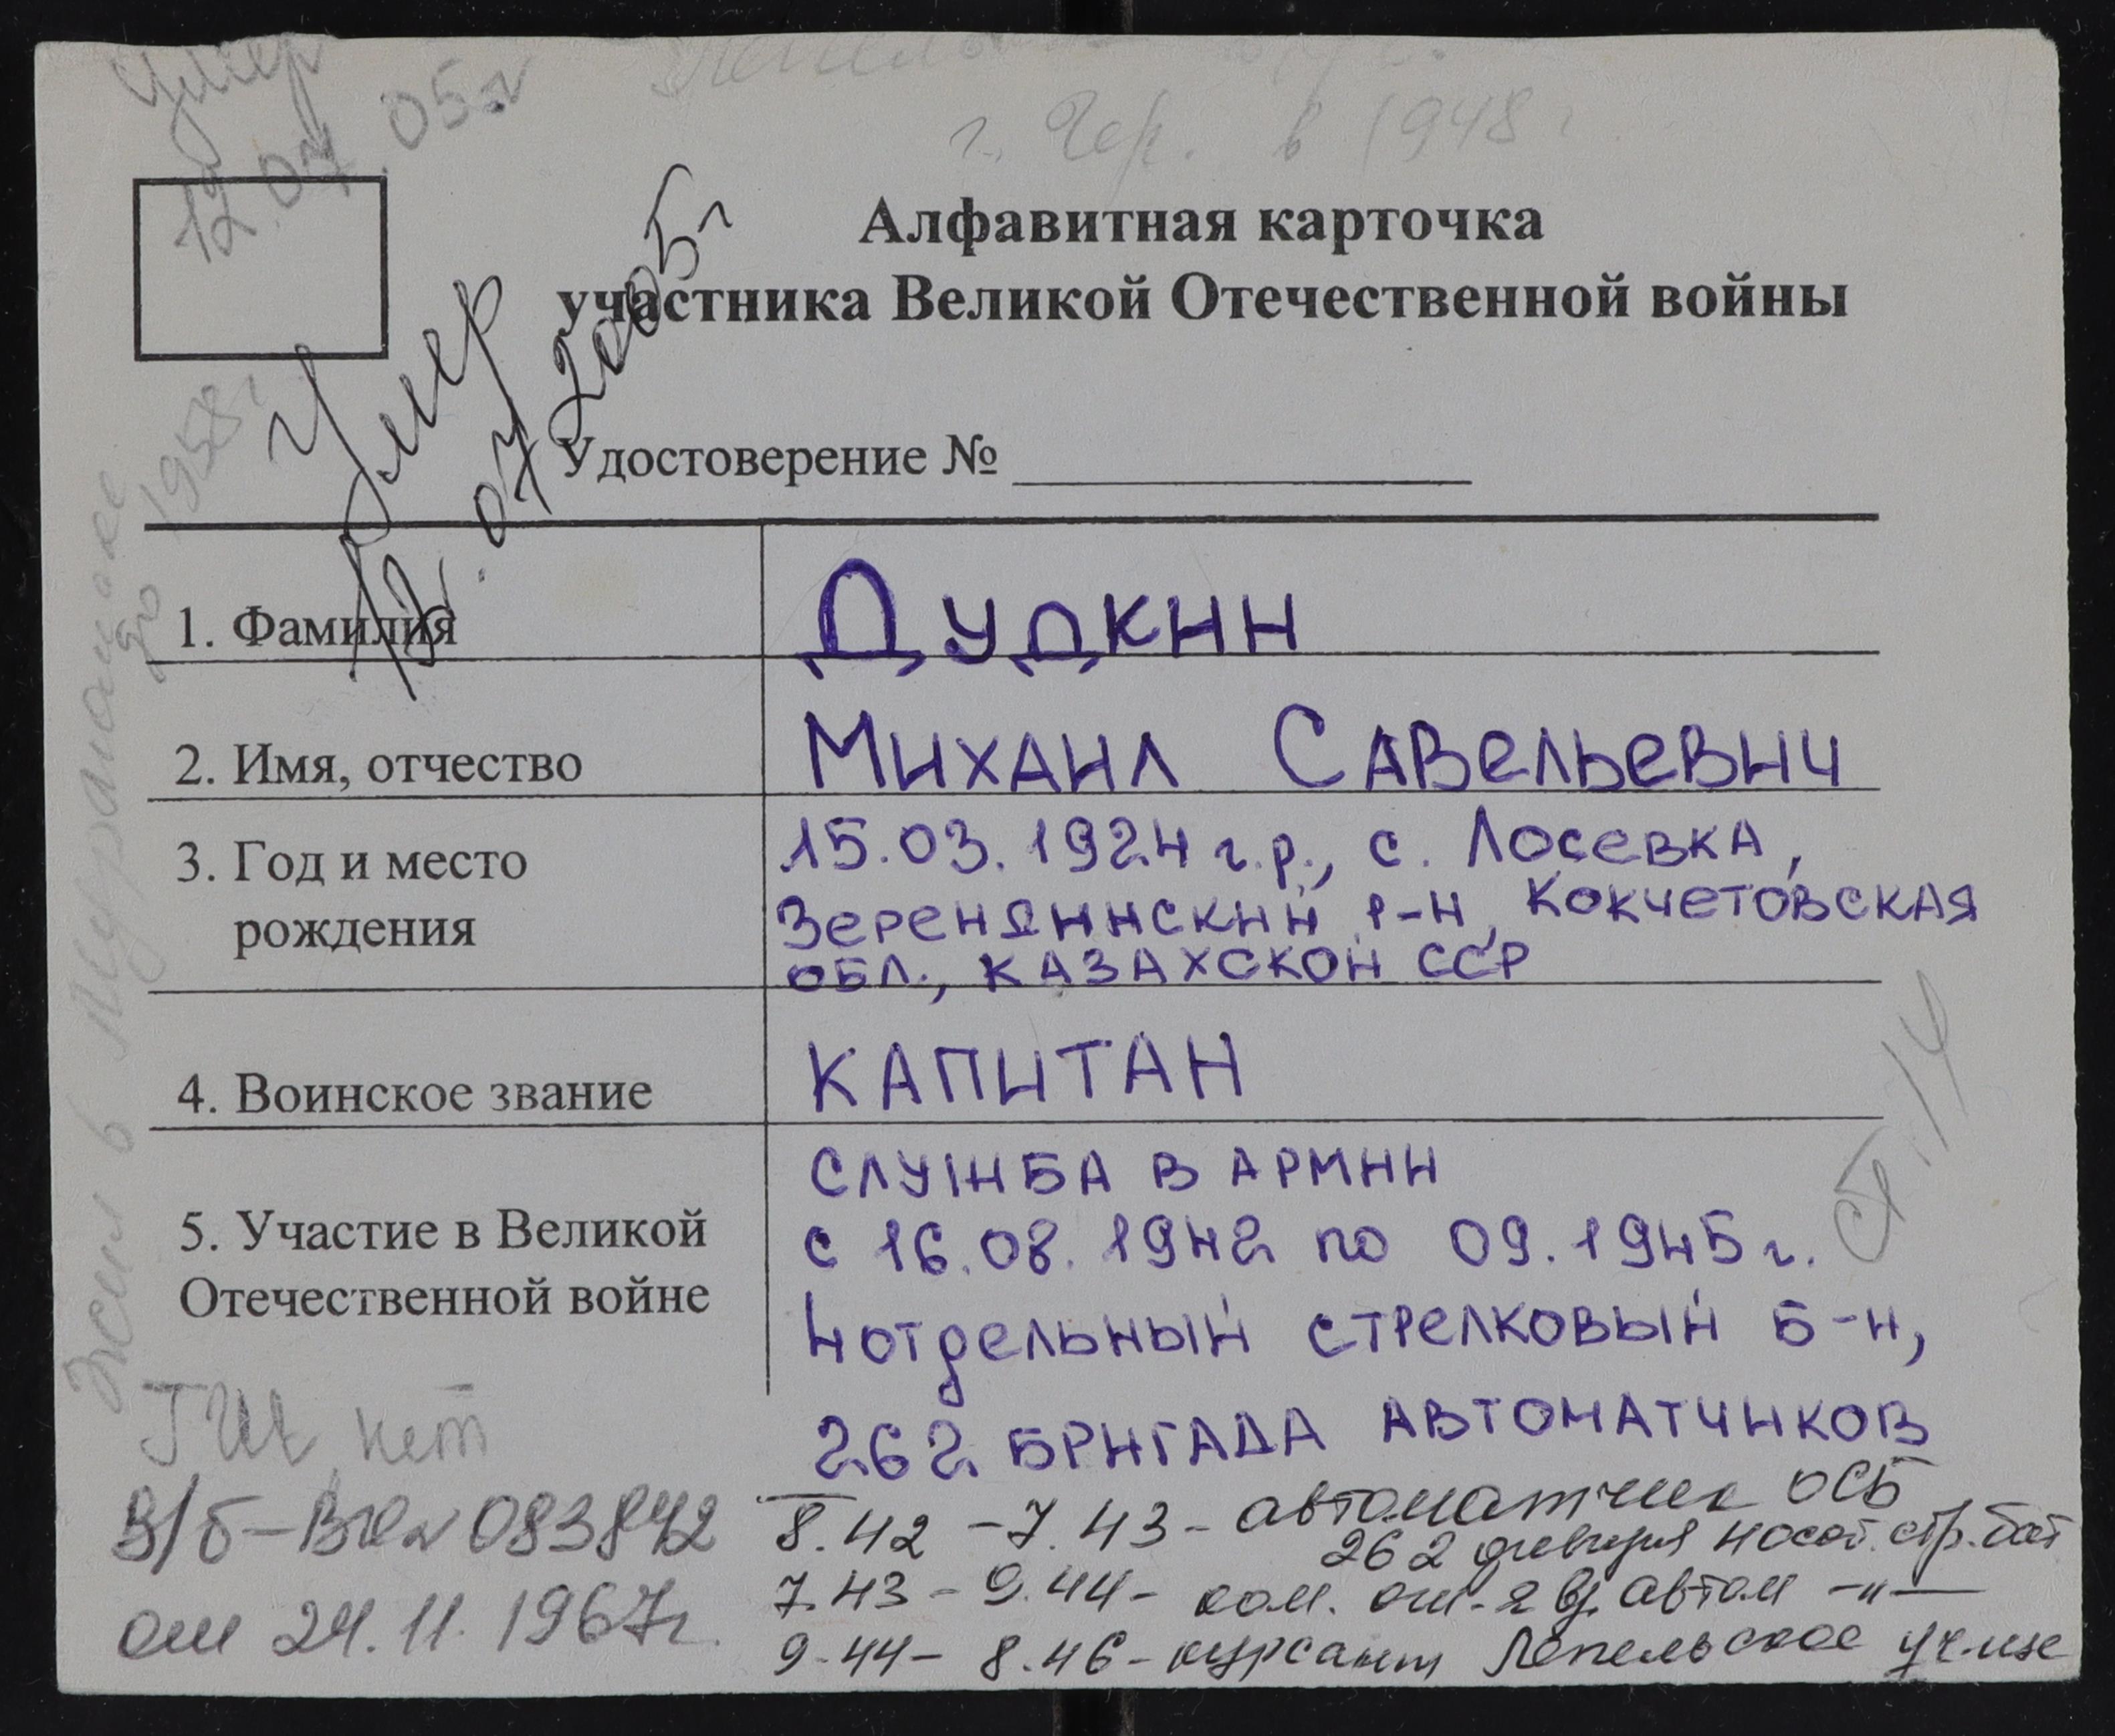 Умер
12.07.05г
г. Чер. в 1948 г.
Алфавитная карточка
участника Великой Отечественной войны
Умер
12.07.2005г
Удостоверение №
1. Фамилия
Дудкин
2. Имя, отчество
Михаил Савельевич
3. Год и место
рождения
15.03.1924 г.р., с. Лосевка,
Зерендинский р-н, Кокчетовская
обл., Казахской ССР
4. Воинское звание
капитан
5. Участие в Великой
Отечественной войне
служба в армии
с 16.08.1942 по 09.1945 г.
4 отдельный стрелковый б-н,
262 бригада автоматчиков
8.42 - 7.43 - автоматчик ОСБ
262 дивизия 4 стр. бат
7.43 - 9.44 - ком. от-я автом -"-
9.44 - 8.46 - курсант Лепельское уч-ще
ст. 14
Жил в
до 1958г
нет
В/б - 083842
от 24.11.1967г.